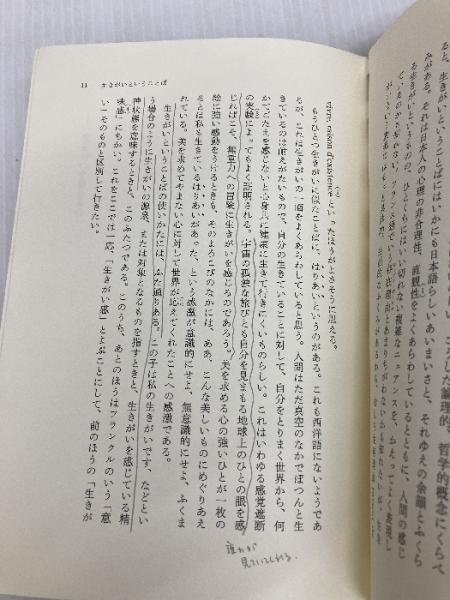 ると、生きがいということばには、いかにも日本語らしいあいまいさと、それゆえの余韻とふくら
みがある。それは日本人の心理の非合理性、直観性をよくあらわしているとともに、人間の感じ
る生きがいというものの、ひとくちにはいい切れない複雑なニュアンスを、かえってよく表現し
11 生きがいということば
vivre, raison d'existence といったほうがよさそうに思える。
もうひとつ生きがいに似たことばに、はりあいというのがある。これも西洋語にないようであ
るが、これは生きがいの一面をよくあらわしていると思う。人間はただ真空のなかでぽつんと生
きているのは耐えがたいもので、自分の生きていることに対して、自分をとりまく世界から、何
かてごたえを感じないと心身共に健康に生きて行きにくいものらしい。これはいわゆる感覚遮断
の実験によってもよく証明される。宇宙の孤独な旅びとも自分を見まもる地球上のひとの眼を感
じればこそ、無重力への冒険に生きがいを感じるのであろう。美を求める心の強いひとが一枚の
絵に強い感動をうけるときも、そのよろこびのなかには、ああ、こんな美しいものにめぐりあえ
るとは私も生きているはりあいがあった、という感激が意識的にせよ、無意識的にせよ、ふくま
れている。美を求めてやまない心に対して世界が応えてくれたことへの感激である。
生きがいということばの使いかたには、ふた通りある。この子は私の生きがいです、などとい
う場合のように生きがいの源泉、または対象となるものを指すときと、生きがいを感じている精
神状態を意味するときと、このふたつである。このうち、あとのほうはフランクルのいう「意
味感」にちかい。これをここでは一応、「生きがい感」とよぶことにして、前のほうの「生きが
い」そのものと区別して行きたい。
誰れが
見ていてくれる。